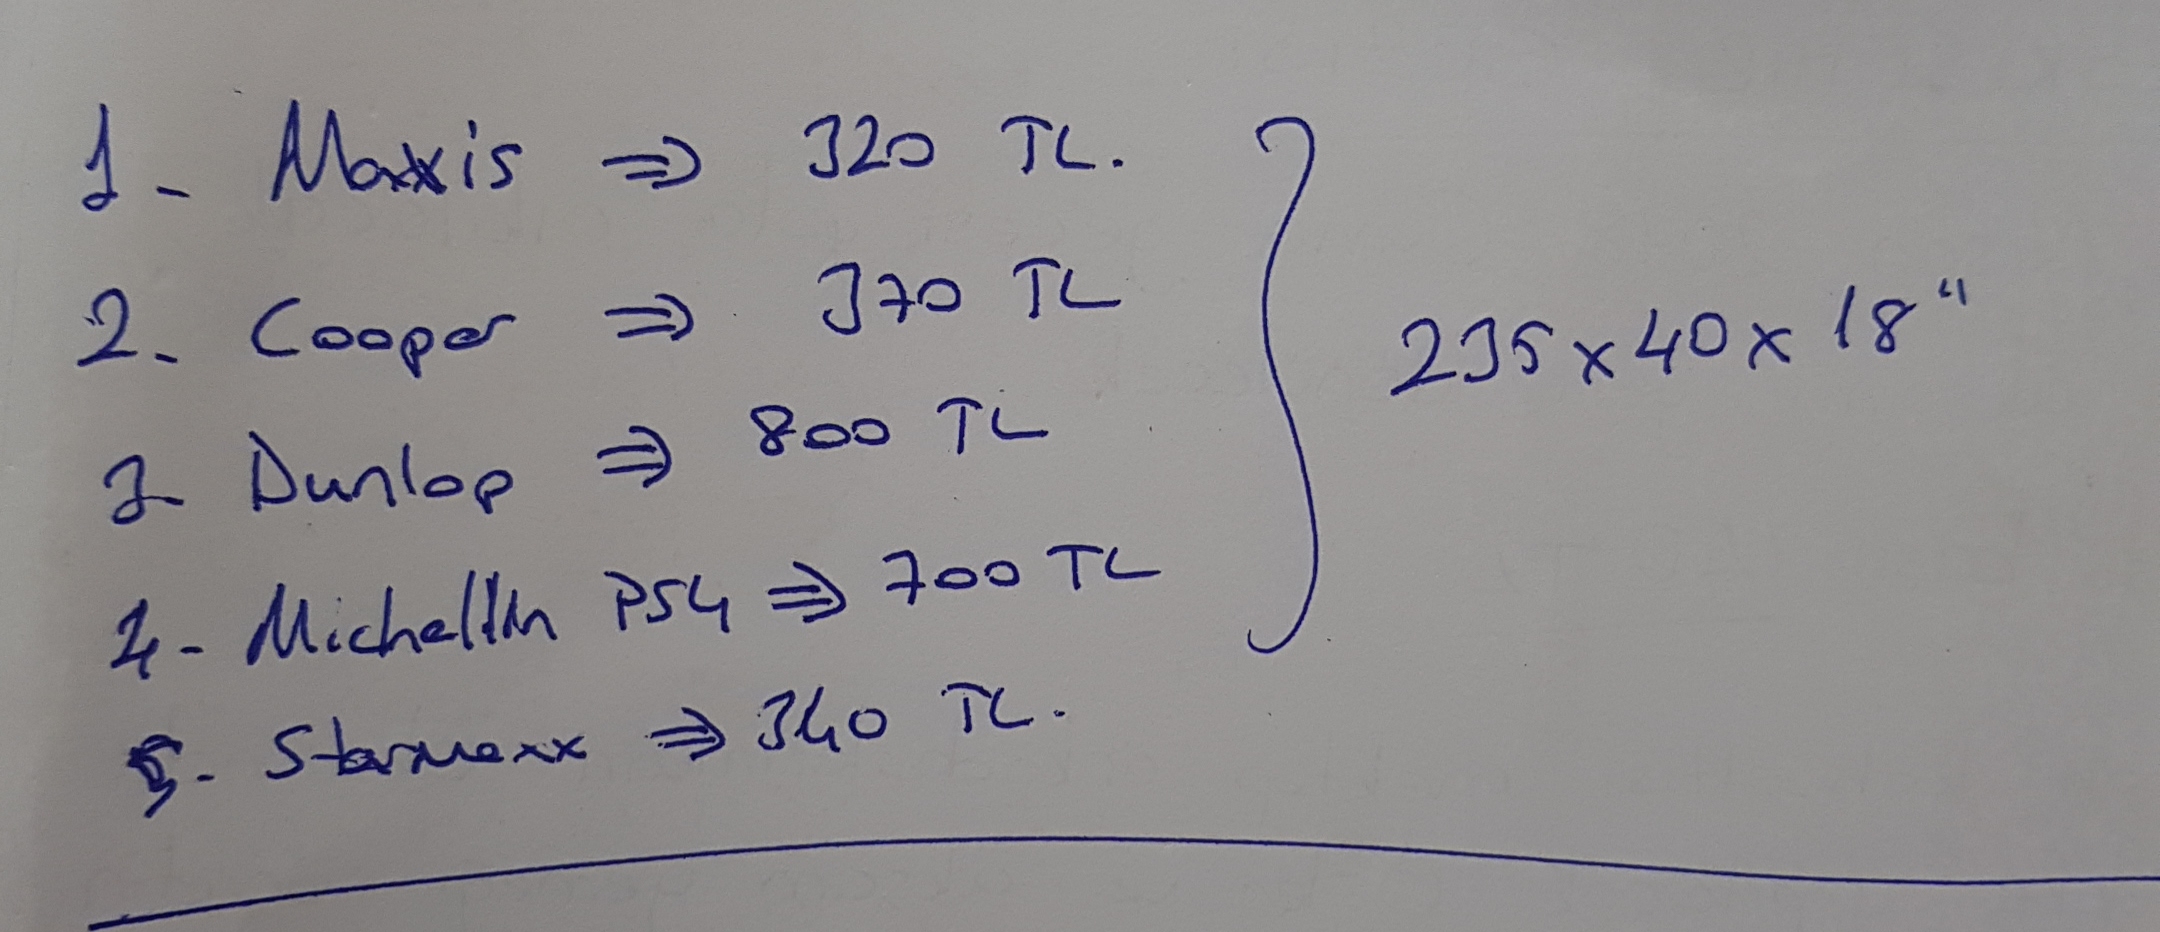 1- Maxxis ⇒ 320 TL.
2- Cooper ⇒ 370 TL
3- Dunlop ⇒ 800 TL
4- Michelin PS4 ⇒ 700 TL
5- Starmaxx ⇒ 340 TL.
235x40x18"